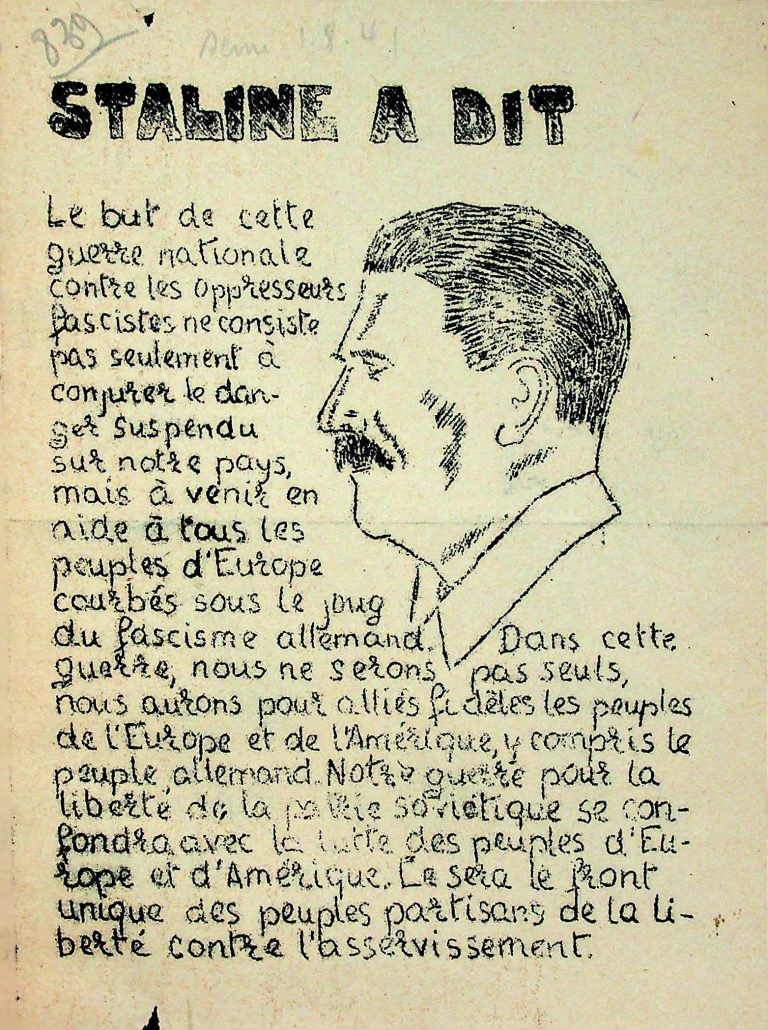 829
1.8.41
STALINE A DIT
Le but de cette
guerre nationale
contre les oppresseurs
fascistes ne consiste
pas seulement à
conjurer le dan-
ger suspendu
sur notre pays,
mais à venir en
aide à tous les
peuples d'Europe
courbés sous le joug
du fascisme allemand. Dans cette
guerre, nous ne serons pas seuls,
nous aurons pour alliés fidèles les peuples
de l'Europe et de l'Amérique, y compris le
peuple allemand. Notre guerre pour la
liberté de la patrie soviétique se con-
fondra avec la lutte des peuples d'Eu-
rope et d'Amérique. Ce sera le front
unique des peuples partisans de la li-
berté contre l'asservissement.